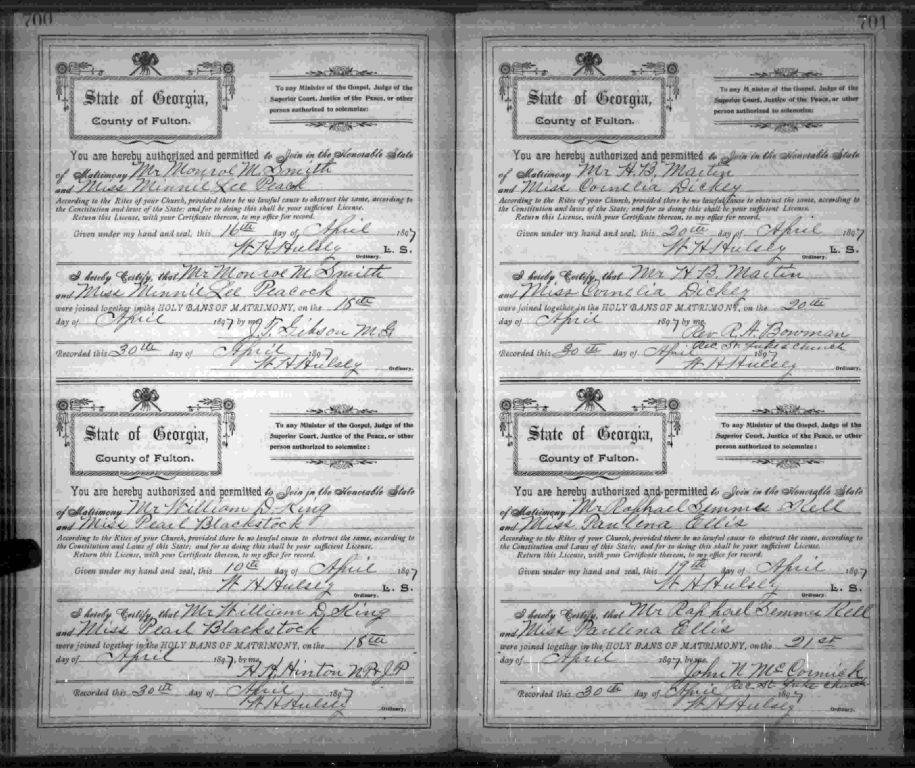 700
State of Georgia,
County of Fulton.
To any Minister of the Gospel, Judge of the
Superior Court, Justice of the Peace, or other
person authorized to solemnize:
You are hereby authorized and permitted to Join in the Honorable State
of Matrimony Mr Monroe M. Smith
and Miss Minnie Lee Peack
According to the Rites of your Church, provided there be no lawful cause to obstruct the same, according to
the Constitution and laws of the State; and for so doing this shall be your sufficient License.
Return this License, with your Certificate thereon, to my office for record.
Given under my hand and seal, this 16th day of April 1897
W. H. Hulsey L. S.
Ordinary.
I hereby Certify, that Mr Monroe M. Smith
and Miss Minnie Lee Peacock
were joined together in the HOLY BANS OF MATRIMONY, on the 18th
day of April 1897 by me
J. T. Gibson M. G
Recorded this 30th day of April 1897
W. H. Hulsey
Ordinary.
State of Georgia,
County of Fulton.
To any Minister of the Gospel, Judge of the
Superior Court, Justice of the Peace, or other
person authorized to solemnize:
You are hereby authorized and permitted to Join in the Honorable State
of Matrimony Mr William D. King
and Miss Pearl Blackstock
According to the Rites of your Church, provided there be no lawful cause to obstruct the same, according to
the Constitution and Laws of this State; and for so doing this shall be your sufficient License.
Return this License, with your Certificate thereon, to my office for record.
Given under my hand and seal, this 10th day of April 1897
W. H. Hulsey L. S.
Ordinary.
I hereby Certify, that Mr William D. King
and Miss Pearl Blackstock
were joined together in the HOLY BANS OF MATRIMONY, on the 18th
day of April 1897, by me
H. H. Hinton N P & J P
Recorded this 30th day of April 1897
W. H. Hulsey
Ordinary.
701
State of Georgia,
County of Fulton.
To any Minister of the Gospel, Judge of the
Superior Court, Justice of the Peace, or other
person authorized to solemnize:
You are hereby authorized and permitted to Join in the Honorable State
of Matrimony Mr H. B. Martin
and Miss Cornelia Dickey
According to the Rites of your Church, provided there be no lawful cause to obstruct the same, according to
the Constitution and laws of the State; and for so doing this shall be your sufficient License.
Return this License, with your Certificate thereon, to my office for record.
Given under my hand and seal, this 20th day of April 1897
W. H. Hulsey L. S.
Ordinary.
I hereby Certify, that Mr H. B. Martin
and Miss Cornelia Dickey
were joined together in the HOLY BANS OF MATRIMONY, on the 20th
day of April 1897 by me
Rev. R. A. Bowman
Rec St. Lukes Church
Recorded this 30th day of April 1897
W. H. Hulsey
Ordinary.
State of Georgia,
County of Fulton.
To any Minister of the Gospel, Judge of the
Superior Court, Justice of the Peace, or other
person authorized to solemnize:
You are hereby authorized and permitted to Join in the Honorable State
of Matrimony Mr Raphael Semmes Kell
and Miss Paulena Ellis
According to the Rites of your Church, provided there be no lawful cause to obstruct the same, according to
the Constitution and Laws of this State; and for so doing this shall be your sufficient License.
Return this License, with your Certificate thereon, to my office for record.
Given under my hand and seal, this 19th day of April 1897
W. H. Hulsey L. S.
Ordinary.
I hereby Certify, that Mr Raphael Semmes Kell
and Miss Paulena Ellis
were joined together in the HOLY BANS OF MATRIMONY, on the 21st
day of April 1897 by me
John N. McCormick
Rec St. Luke Church
Recorded this 30th day of April 1897
W. H. Hulsey
Ordinary.